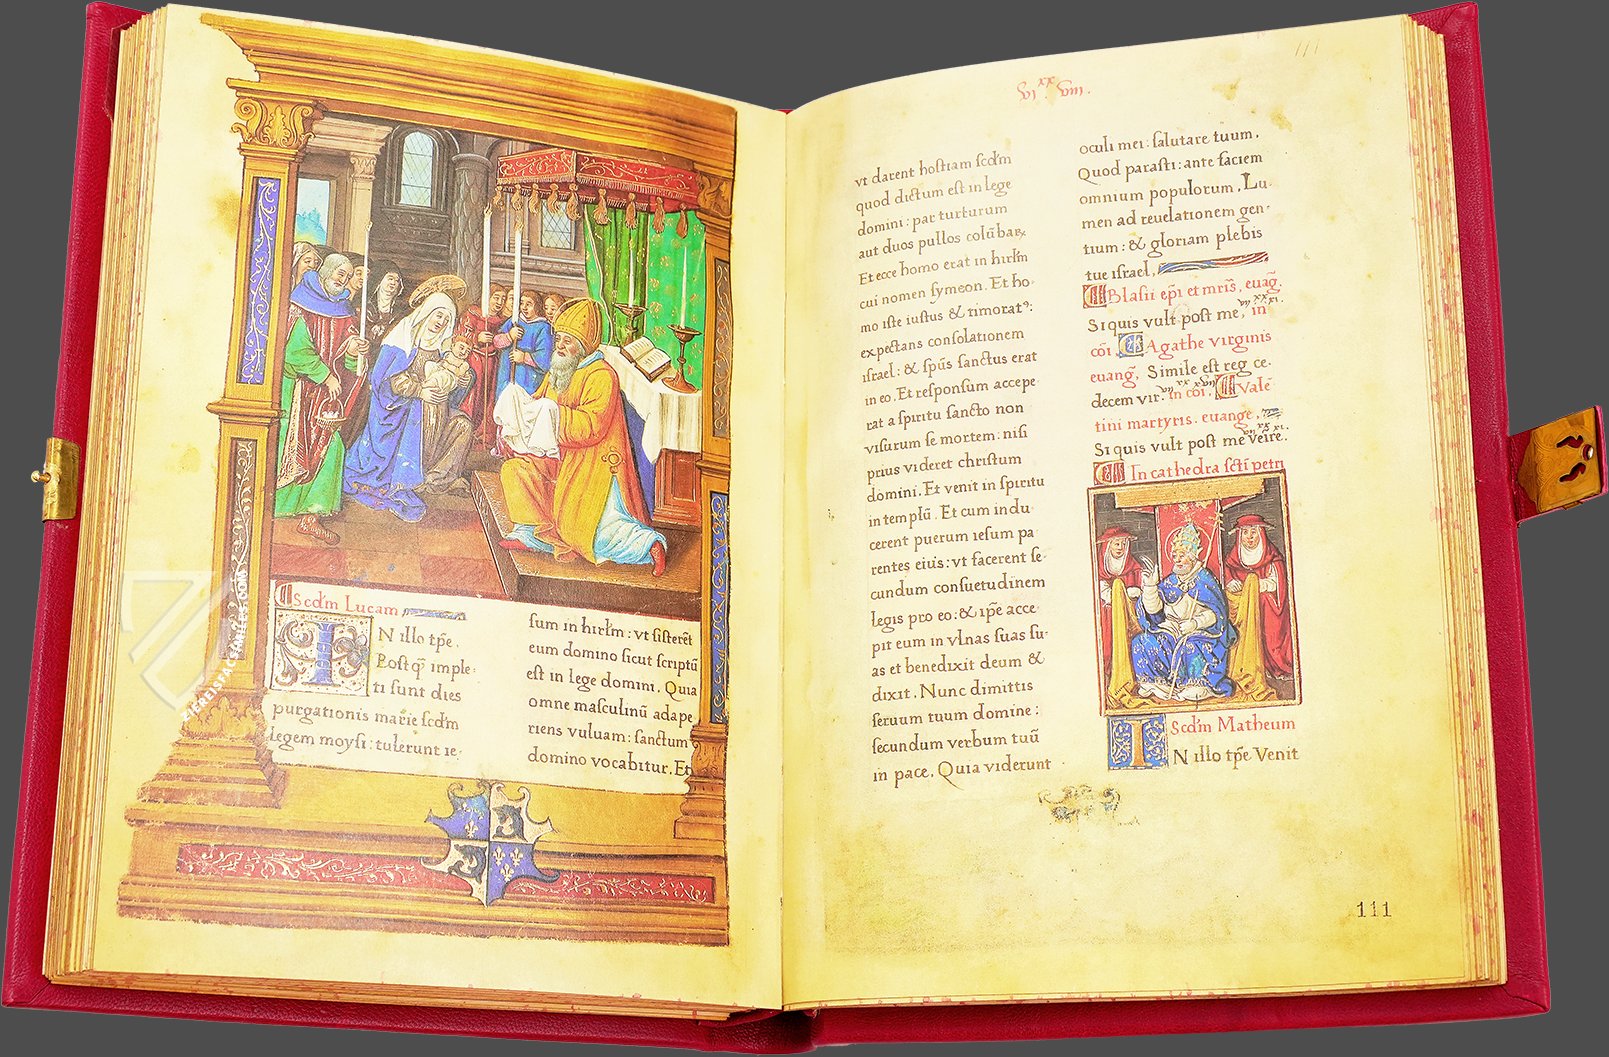 Scd̄m Lucam
IN illo tp̄e.
Postq̄ imple-
ti sunt dies
purgationis marie scd̄m
legem moysi: tulerunt ie-
sum in hirl̄m: vt sisterēt
eum domino sicut scriptū
est in lege domini. Quia
omne masculinū adape
riens vuluam: sanctum
domino vocabitur. Et
vt darent hostiam scd̄m
quod dictum est in lege
domini: par turturum
aut duos pullos colūbaꝝ
Et ecce homo erat in hirl̄m
cui nomen symeon. Et ho-
mo iste iustus & timoratꝰ:
expectans consolationem
israel: & sp̄us sanctus erat
in eo. Et responsum accepe
rat a spiritu sancto non
visurum se mortem: nisi
prius videret christum
domini. Et venit in spiritu
in templū. Et cum indu-
cerent puerum iesum pa
rentes eius: vt facerent se-
cundum consuetudinem
legis pro eo: & ip̄e acce-
pit eum in vlnas suas su-
as et benedixit deum &
dixit. Nunc dimittis
seruum tuum domine:
secundum verbum tuū
in pace. Quia viderunt
oculi mei: salutare tuum.
Quod parasti: ante faciem
omnium populorum. Lu-
men ad reuelationem gen-
tium: & gloriam plebis
tue israel.
Blasii ep̄i et mr̄is, euag̅.
Si quis vult post me, in
cōi. Agathe virginis
euang̅. Simile est reg ce.
decem vir. in cōi. Vale
tini martyris. euange.
Si quis vult post me veire.
In cathedra sc̄ti petri
Scd̄m Matheum
IN illo tp̄e Venit
111
ZIEREISFACSIMILES.COM